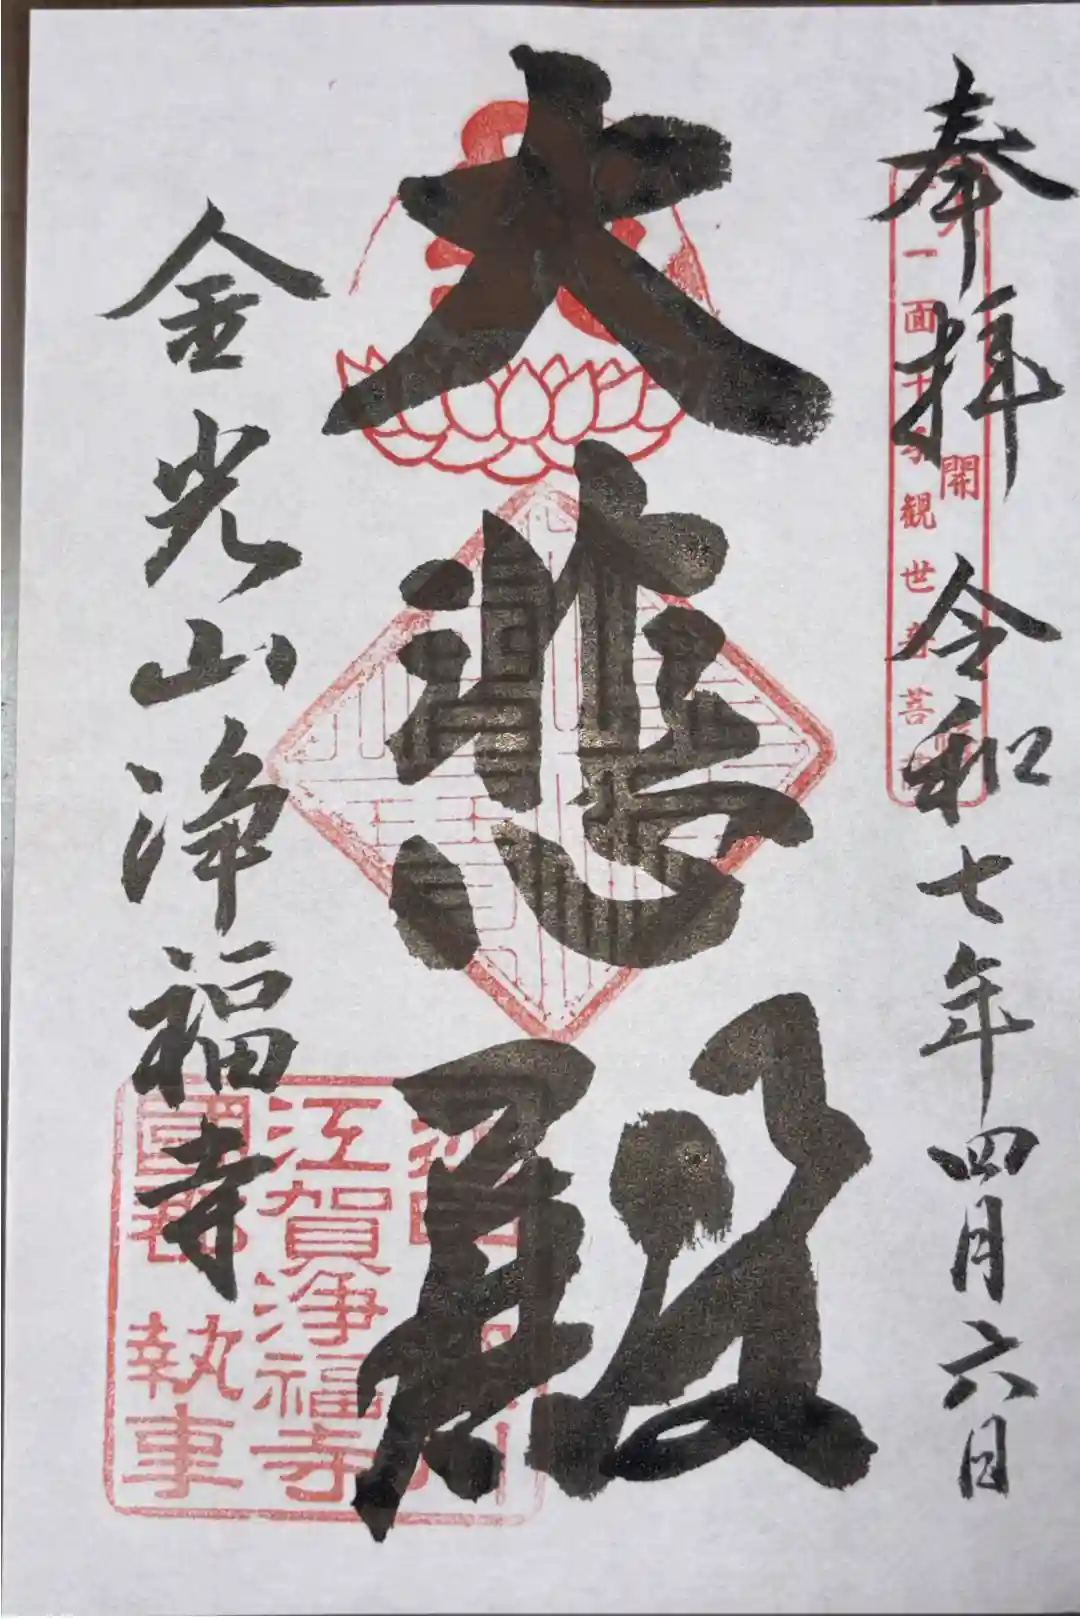 奉拝 令和七年四月六日
開
一面千手観世音菩
大悲殿
金光山浄福寺
江賀浄福寺
國
執事